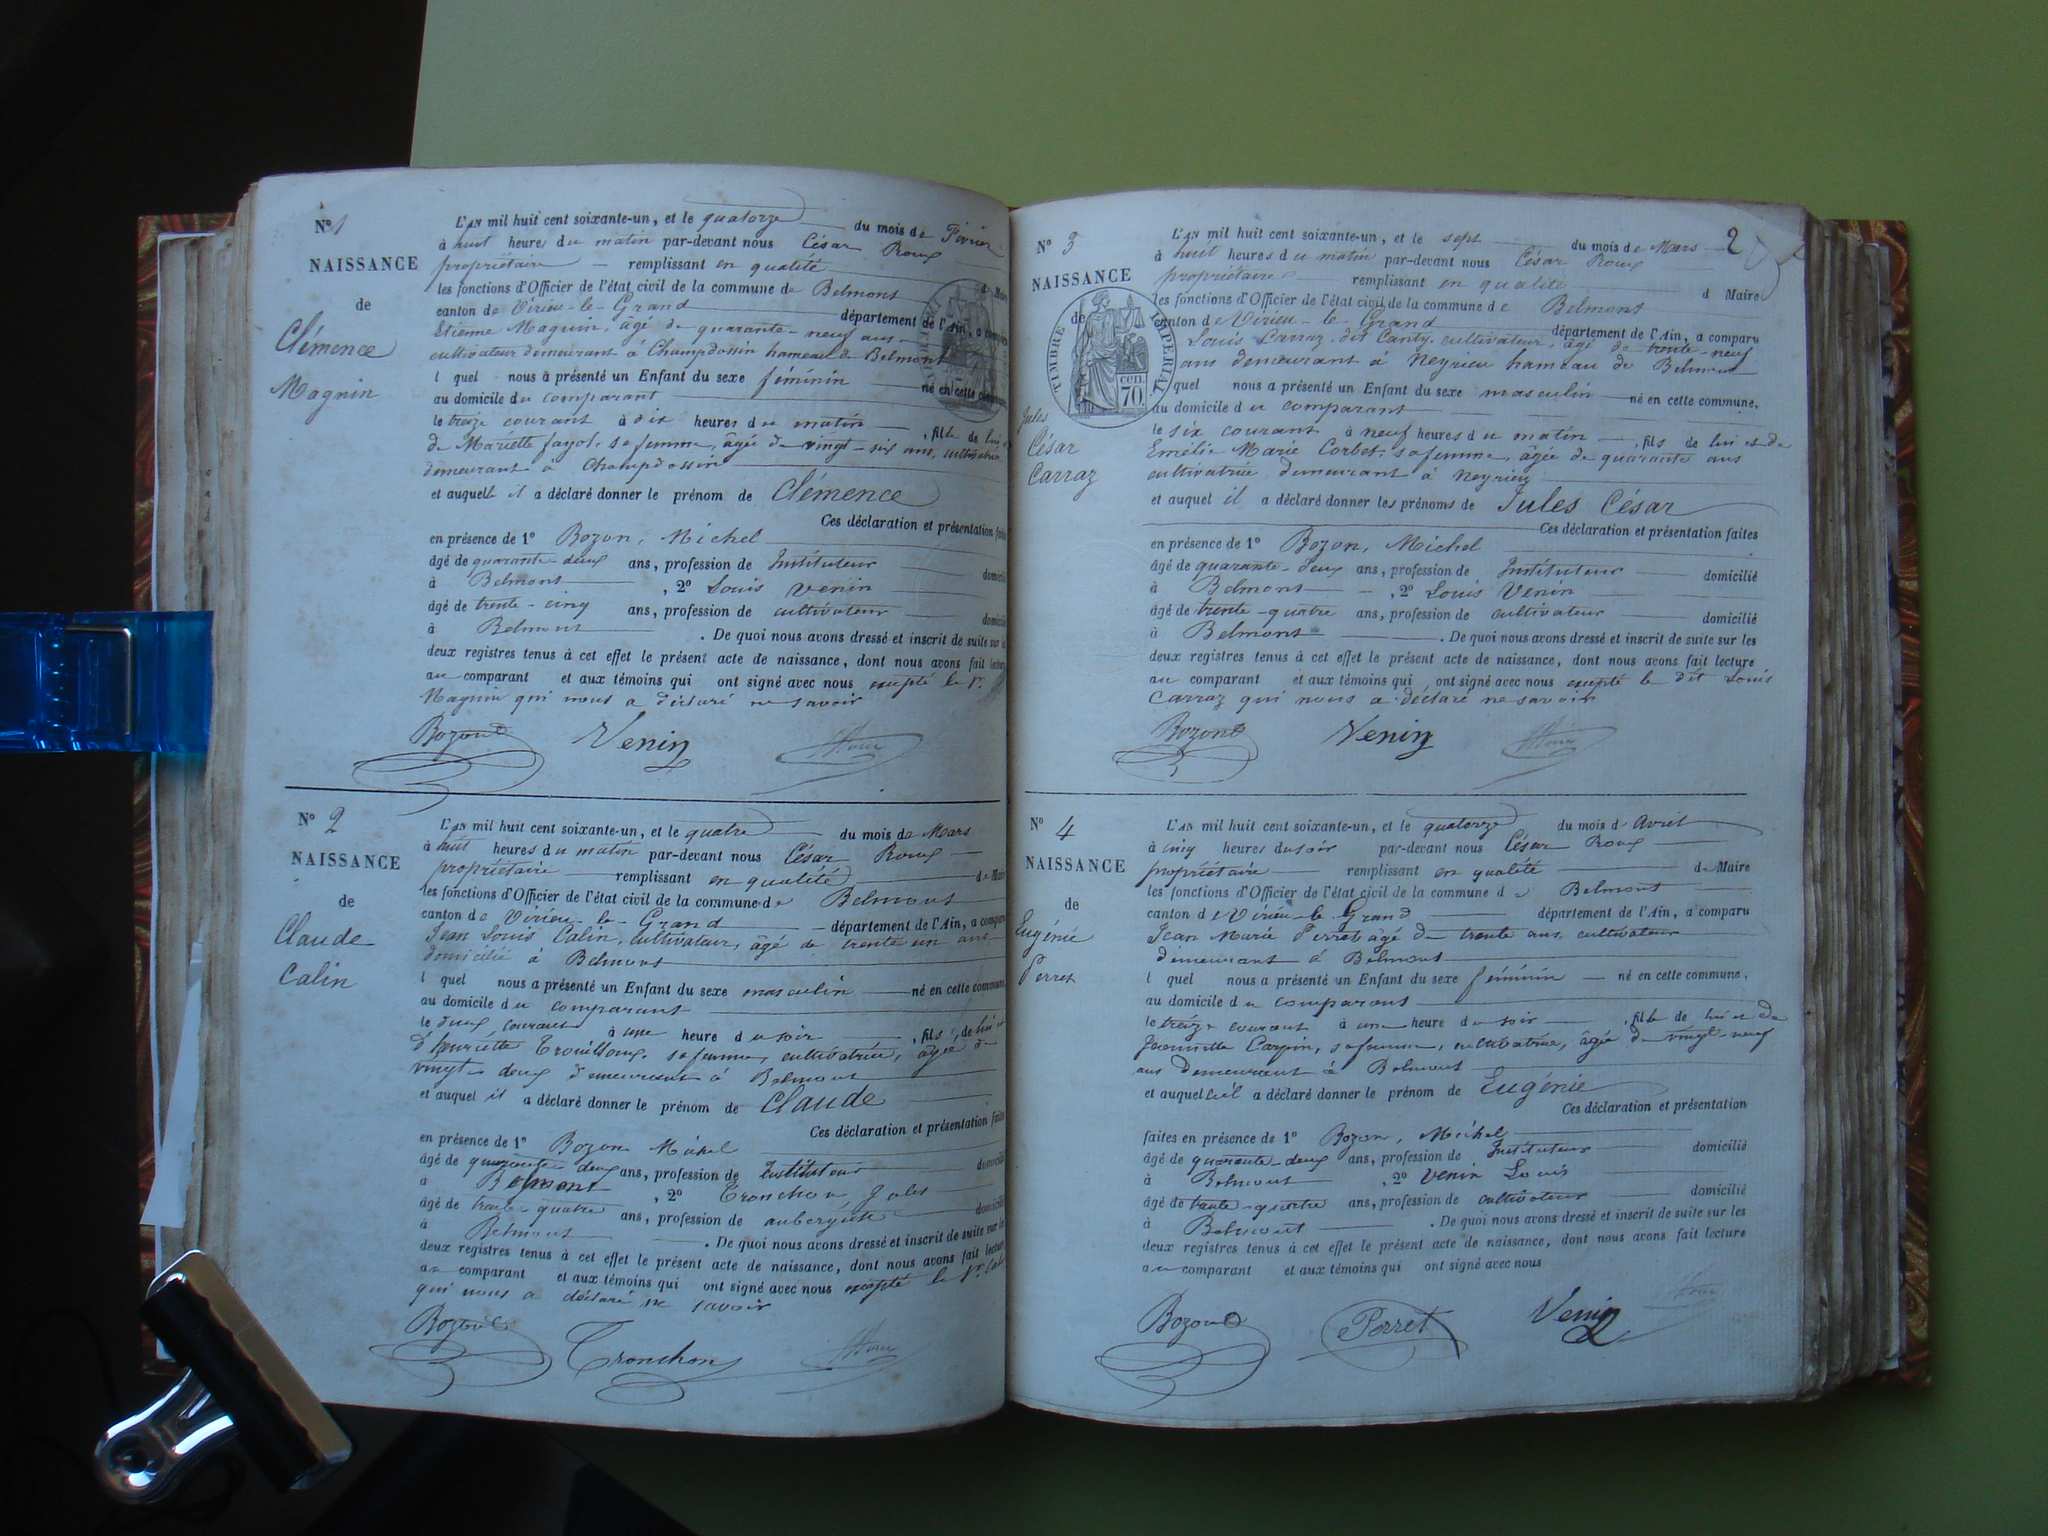 N° 1
NAISSANCE
de
Clémence
Magnin
L'AN mil huit cent soixante-un, et le quatorze du mois de Février
à huit heures du matin par-devant nous César Roux
propriétaire remplissant en qualité d Maire
les fonctions d'Officier de l'état civil de la commune de Belmont
canton de Virieu-le-Grand département de l'Ain, a comparu
Etienne Magnin, âgé de quarante-neuf ans
cultivateur demeurant à Champdossin hameau de Belmont
l quel nous a présenté un Enfant du sexe féminin né en cette commune
au domicile du comparant
le treize courant à dix heures du matin , fille de lui et
de Mariette fayol, sa femme, âgée de vingt-six ans, cultivatrice
demeurant à Champdossin
et auquel il a déclaré donner le prénom de Clémence
Ces déclaration et présentation faites
en présence de 1° Bozon, Michel
âgé de quarante-deux ans, profession de Instituteur domicilié
à Belmont , 2° Louis Venin
âgé de trente-cinq ans, profession de cultivateur domicilié
à Belmont . De quoi nous avons dressé et inscrit de suite sur les
deux registres tenus à cet effet le présent acte de naissance, dont nous avons fait lecture
au comparant et aux témoins qui ont signé avec nous excepté le Sr.
Magnin qui nous a déclaré ne savoir
Bozon Venin Roux
N° 2
NAISSANCE
de
Claude
Calin
L'AN mil huit cent soixante-un, et le quatre du mois de Mars
à huit heures du matin par-devant nous César Roux
propriétaire remplissant en qualité de Maire
les fonctions d'Officier de l'état civil de la commune de Belmont
canton de Virieu-le-Grand département de l'Ain, a comparu
Jean Louis Calin, cultivateur, âgé de trente un ans
domicilié à Belmont
l quel nous a présenté un Enfant du sexe masculin né en cette commune
au domicile du comparant
le deux courant à une heure du soir , fils de lui et
d'henriette Trouilloux, sa femme, cultivatrice, âgée de
vingt-deux demeurant à Belmont
et auquel il a déclaré donner le prénom de Claude
Ces déclaration et présentation faites
en présence de 1° Bozon Michel
âgé de quarante-deux ans, profession de Instituteur domicilié
à Belmont , 2° Tronchon, Jules
âgé de trente-quatre ans, profession de aubergiste domicilié
à Belmont . De quoi nous avons dressé et inscrit de suite sur les
deux registres tenus à cet effet le présent acte de naissance, dont nous avons fait lecture
au comparant et aux témoins qui ont signé avec nous excepté le Sr. Calin
qui nous a déclaré ne savoir
Bozon Tronchon Roux
2
N° 3
NAISSANCE
de
Jules
César
Carraz
TIMBRE IMPERIAL
70 cen.
L'AN mil huit cent soixante-un, et le sept du mois de Mars
à huit heures du matin par-devant nous César Roux
propriétaire remplissant en qualité d Maire
les fonctions d'Officier de l'état civil de la commune de Belmont
canton de Virieu-le-Grand département de l'Ain, a comparu
Louis Carraz dit Canty, cultivateur, âgé de trente-neuf
ans demeurant à Neyrieu hameau de Belmont
l quel nous a présenté un Enfant du sexe masculin né en cette commune.
au domicile du comparant
le six courant à neuf heures du matin , fils de lui et de
Emélie Marie Corbet, sa femme, âgée de quarante ans
cultivatrice demeurant à Neyrieu
et auquel il a déclaré donner les prénoms de Jules César
Ces déclaration et présentation faites
en présence de 1° Bozon, Michel
âgé de quarante-deux ans, profession de Instituteur domicilié
à Belmont , 2° Louis Venin
âgé de trente-quatre ans, profession de cultivateur domicilié
à Belmont . De quoi nous avons dressé et inscrit de suite sur les
deux registres tenus à cet effet le présent acte de naissance, dont nous avons fait lecture
au comparant et aux témoins qui ont signé avec nous excepté le dit Louis
Carraz qui nous a déclaré ne savoir
Bozon Venin Roux
N° 4
NAISSANCE
de
Eugénie
Perret
L'AN mil huit cent soixante-un, et le quatorze du mois d'avril
à cinq heures du soir par-devant nous César Roux
propriétaire remplissant en qualité de Maire
les fonctions d'Officier de l'état civil de la commune de Belmont
canton de Virieu-le-Grand département de l'Ain, a comparu
Jean Marie Perret âgé de trente ans, cultivateur
demeurant à Belmont
l quel nous a présenté un Enfant du sexe féminin né en cette commune.
au domicile du comparant
le treize courant à une heure du soir , fille de lui et de
Jeannette Carpin, sa femme, cultivatrice, âgée de vingt-neuf
ans demeurant à Belmont
et auquel il a déclaré donner le prénom de Eugénie
Ces déclaration et présentation
faites en présence de 1° Bozon, Michel
âgé de quarante-deux ans, profession de Instituteur domicilié
à Belmont , 2° Venin Louis
âgé de trente-quatre ans, profession de cultivateur domicilié
à Belmont . De quoi nous avons dressé et inscrit de suite sur les
deux registres tenus à cet effet le présent acte de naissance, dont nous avons fait lecture
au comparant et aux témoins qui ont signé avec nous
Bozon Perret Venin Roux